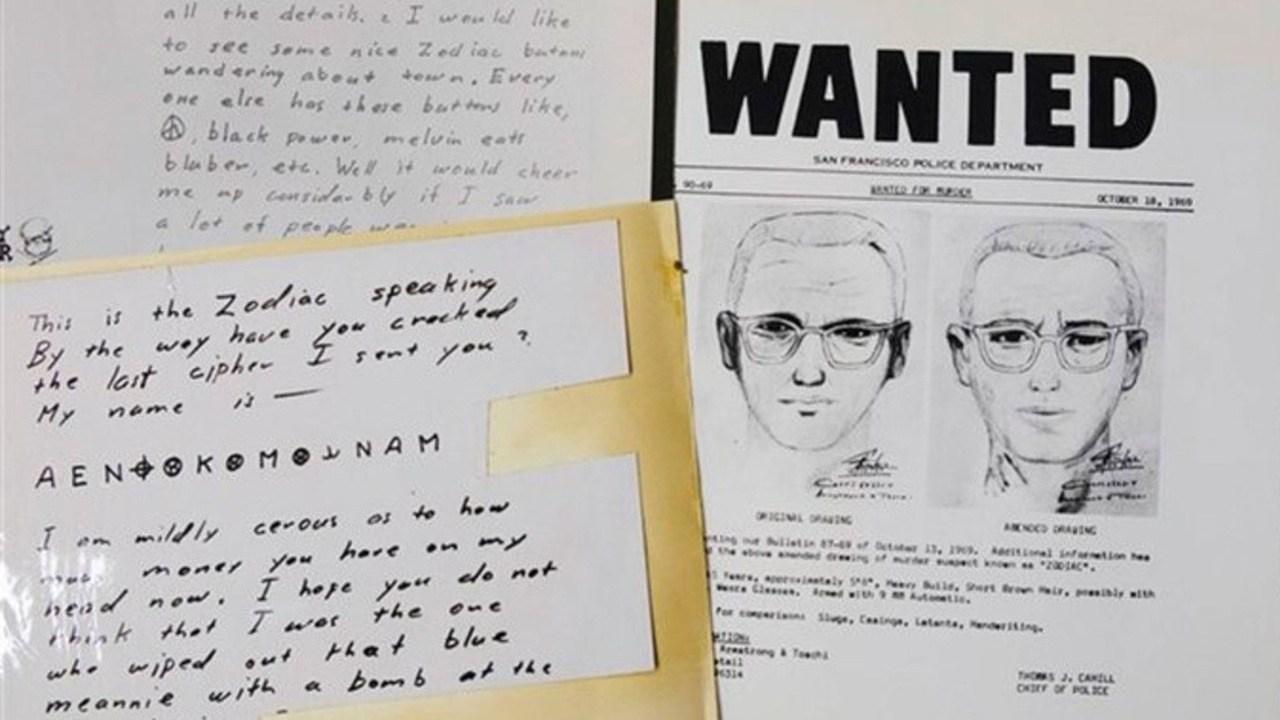 all the details. I would like
to see some nice Zodiac butons
wandering about town. Every
one else has these buttons like,
, black power, melvin eats
bluber, etc. Well it would cheer
me up considerbly if I saw
a lot of people
This is the Zodiac speaking
By the way have you cracked
the last cipher I sent you ?
My name is —
A E N ⌖ ⊗ K ⊗ M ⊗ ⅄ N A M
I am mildly cerous as to how
much money you have on my
head now. I hope you do not
think that I was the one
who wiped out that blue
meannie with a bomb at the
WANTED
SAN FRANCISCO POLICE DEPARTMENT
90-69 WANTED FOR MURDER OCTOBER 18, 1969
ORIGINAL DRAWING AMENDED DRAWING
our Bulletin 87-69 of October 13, 1969. Additional information has
the above amended drawing of murder suspect known as "ZODIAC".
Years, approximately 5'8", Heavy Build, Short Brown Hair, possibly with
Wears Glasses. Armed with 9 MM Automatic.
for comparison: Slugs, Casings, Latents, Handwriting.
Armstrong & Toschi
THOMAS J. CAHILL
CHIEF OF POLICE